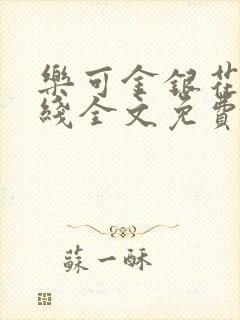 樂可金銀花
綫全文免費
蘇一酥